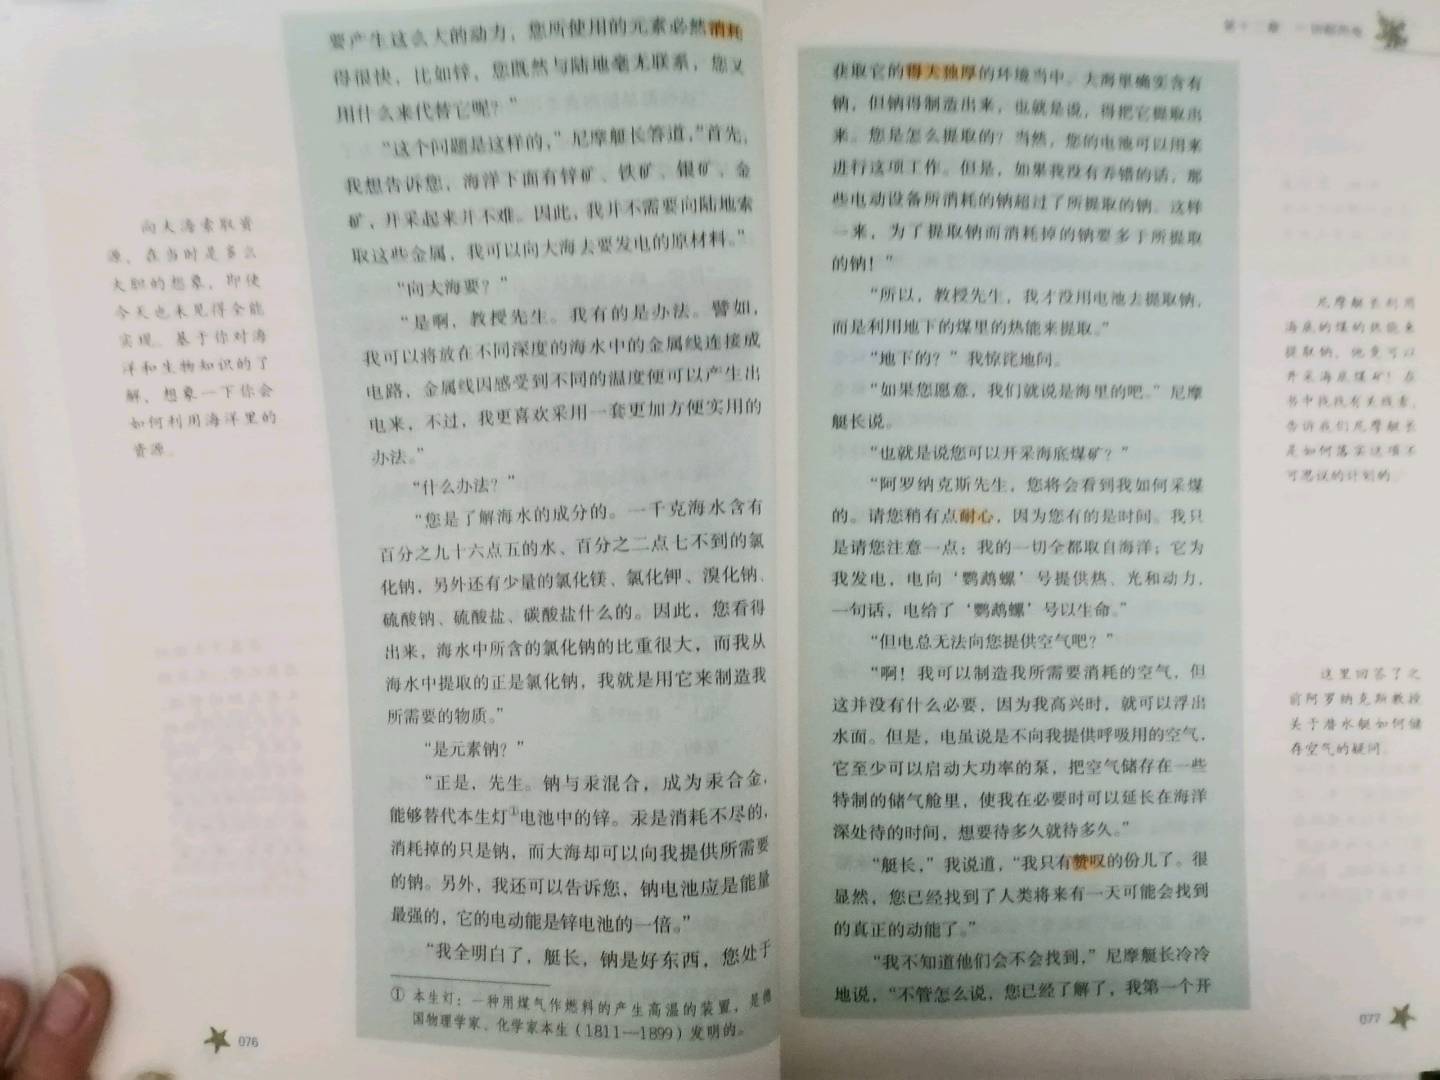 要产生这么大的动力，您所使用的元素必然消耗
得很快，比如锌，您既然与陆地毫无联系，您又
用什么来代替它呢？”
“这个问题是这样的，”尼摩艇长答道，“首先，
我想告诉您，海洋下面有锌矿、铁矿、银矿、金
矿，开采起来并不难。因此，我并不需要向陆地索
取这些金属，我可以向大海去要发电的原材料。”
“向大海要？”
“是啊，教授先生。我有的是办法。譬如，
我可以将放在不同深度的海水中的金属线连接成
电路，金属线因感受到不同的温度便可以产生出
电来，不过，我更喜欢采用一套更加方便实用的
办法。”
“什么办法？”
“您是了解海水的成分的。一千克海水含有
百分之九十六点五的水、百分之二点七不到的氯
化钠，另外还有少量的氯化镁、氯化钾、溴化钠、
硫酸钠、硫酸盐、碳酸盐什么的。因此，您看得
出来，海水中所含的氯化钠的比重很大，而我从
海水中提取的正是氯化钠，我就是用它来制造我
所需要的物质。”
“是元素钠？”
“正是，先生。钠与汞混合，成为汞合金，
能够替代本生灯①电池中的锌。汞是消耗不尽的，
消耗掉的只是钠，而大海却可以向我提供所需要
的钠。另外，我还可以告诉您，钠电池应是能量
最强的，它的电动能是锌电池的一倍。”
“我全明白了，艇长，钠是好东西，您处于
① 本生灯：一种用煤气作燃料的产生高温的装置，是德
国物理学家、化学家本生（1811—1899）发明的。
向大海索取资
源，在当时是多么
大胆的想象，即使
今天也未见得全能
实现。基于你对海
洋和生物知识的了
解，想象一下你会
如何利用海洋里的
资源。
076
第十二章
获取它的得天独厚的环境当中。大海里确实含有
钠，但钠得制造出来，也就是说，得把它提取出
来。您是怎么提取的？当然，您的电池可以用来
进行这项工作。但是，如果我没有弄错的话，那
些电动设备所消耗的钠超过了所提取的钠。这样
一来，为了提取钠而消耗掉的钠要多于所提取
的钠！”
“所以，教授先生，我才没用电池去提取钠，
而是利用地下的煤里的热能来提取。”
“地下的？”我惊诧地问。
“如果您愿意，我们就说是海里的吧。”尼摩
艇长说。
“也就是说您可以开采海底煤矿？”
“阿罗纳克斯先生，您将会看到我如何采煤
的。请您稍有点耐心，因为您有的是时间。我只
是请您注意一点：我的一切全都取自海洋；它为
我发电，电向‘鹦鹉螺’号提供热、光和动力，
一句话，电给了‘鹦鹉螺’号以生命。”
“但电总无法向您提供空气吧？”
“啊！我可以制造我所需要消耗的空气，但
这并没有什么必要，因为我高兴时，就可以浮出
水面。但是，电虽说是不向我提供呼吸用的空气，
它至少可以启动大功率的泵，把空气储存在一些
特制的储气舱里，使我在必要时可以延长在海洋
深处待的时间，想要待多久就待多久。”
“艇长，”我说道，“我只有赞叹的份儿了。很
显然，您已经找到了人类将来有一天可能会找到
的真正的动能了。”
“我不知道他们会不会找到，”尼摩艇长冷冷
地说，“不管怎么说，您已经了解了，我第一个开
尼摩艇长利用
海底的煤的热能来
提取钠，他竟可以
开采海底煤矿！在
书中找找有关线索，
告诉我们尼摩艇长
是如何落实这项不
可思议的计划的。
这里回答了之
前阿罗纳克斯教授
关于潜水艇如何储
存空气的疑问。
077